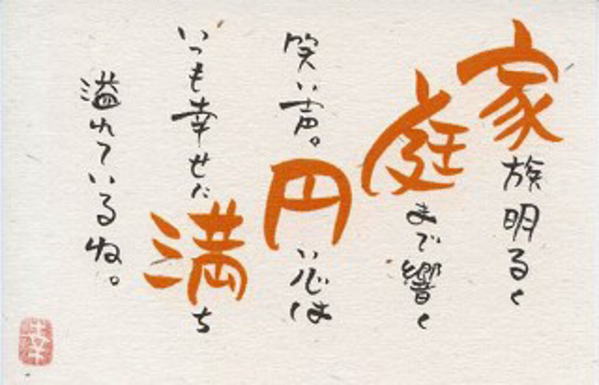 家族明るく
庭まで響く
笑い声。円い心は
いつも幸せに満ち
溢れているね。
幸